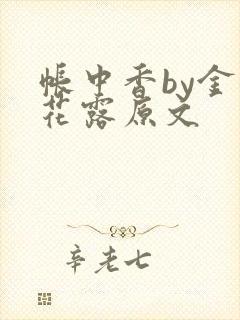 帐中香by金
花露原文
辛老七